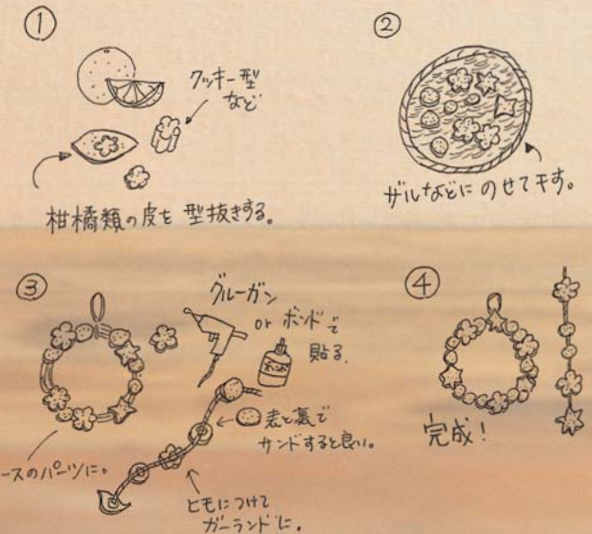 ①
クッキー型
など
柑橘類の皮を型抜きする。
②
ザルなどにのせて干す。
③
グルーガン
or ボンドで
貼る。
表と裏で
サンドすると良い。
ースのパーツに。
ヒモにつけて
ガーランドに。
④
完成!